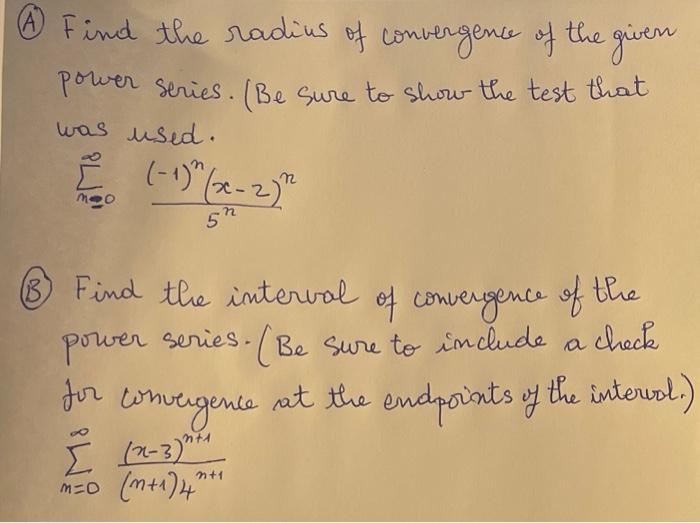 (A) Find the radius of convergence of the given
power series. (Be sure to show the test that
was used.
∞
Σ (-1)^n (x-2)^n
n=0 5^n
(B) Find the interval of convergence of the
power series. (Be sure to include a check
for convergence at the endpoints of the interval.)
∞
Σ (x-3)^{n+1}
n=0 (n+1)4^{n+1}